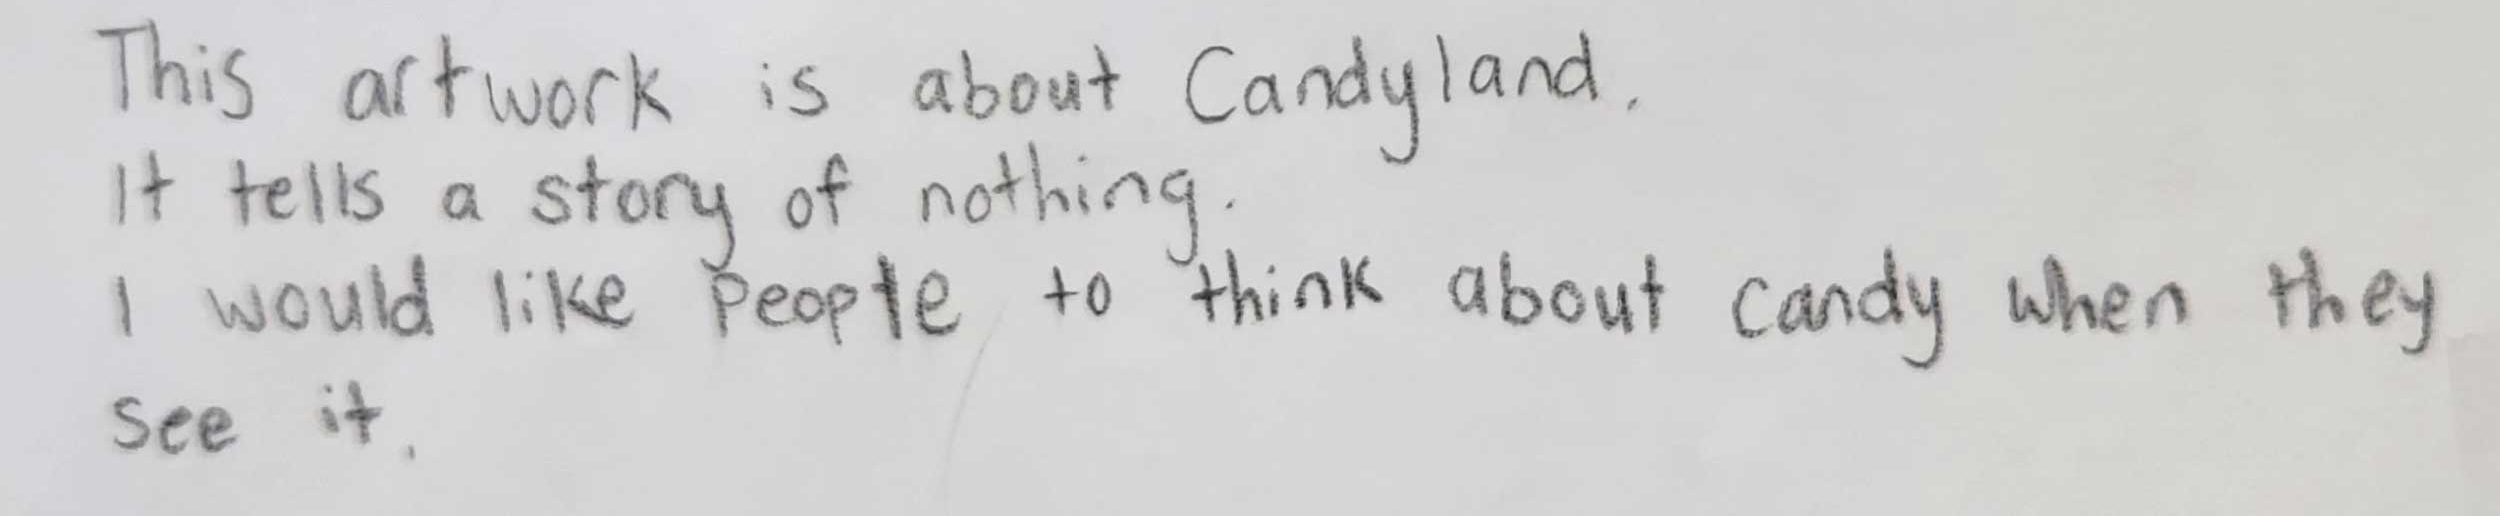 This artwork is about Candyland.
It tells a story of nothing.
I would like people to think about candy when they
see it.